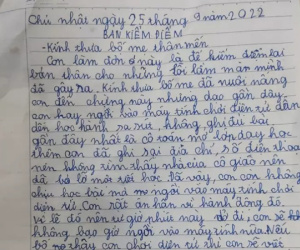 Chủ nhật ngày 25 tháng 9 năm 2022
BẢN KIỂM ĐIỂM
- Kính thưa bố mẹ thân mến
Con làm đơn này là để kiểm điểm lại
bản thân cho những lỗi lầm mà mình
đã gây ra. Kính thưa bố mẹ đã nuôi nấng
con đến chừng này nhưng dạo gần đây
con hay ngồi vào máy tính chơi điện tử dẫn
đến học hành sa sút, không ghi đủ bài
gần đây nhất là cô toán mở lớp dạy học
thêm con đã ghi địa chỉ, số điện thoại
nên không tìm thấy nhà của cô giáo nên
đã bỏ lỡ mất buổi học là vậy, con còn không
chịu học bài mà mẹ ngồi vào máy tính chơi
điện tử. Con rất ân hận vì hành động đó,
vì lẽ đó nên từ giờ phút này trở đi, con sẽ
không bao giờ ngồi vào máy tính nữa. Nếu
bố mẹ thấy con chơi điện tử thì con sẽ viết